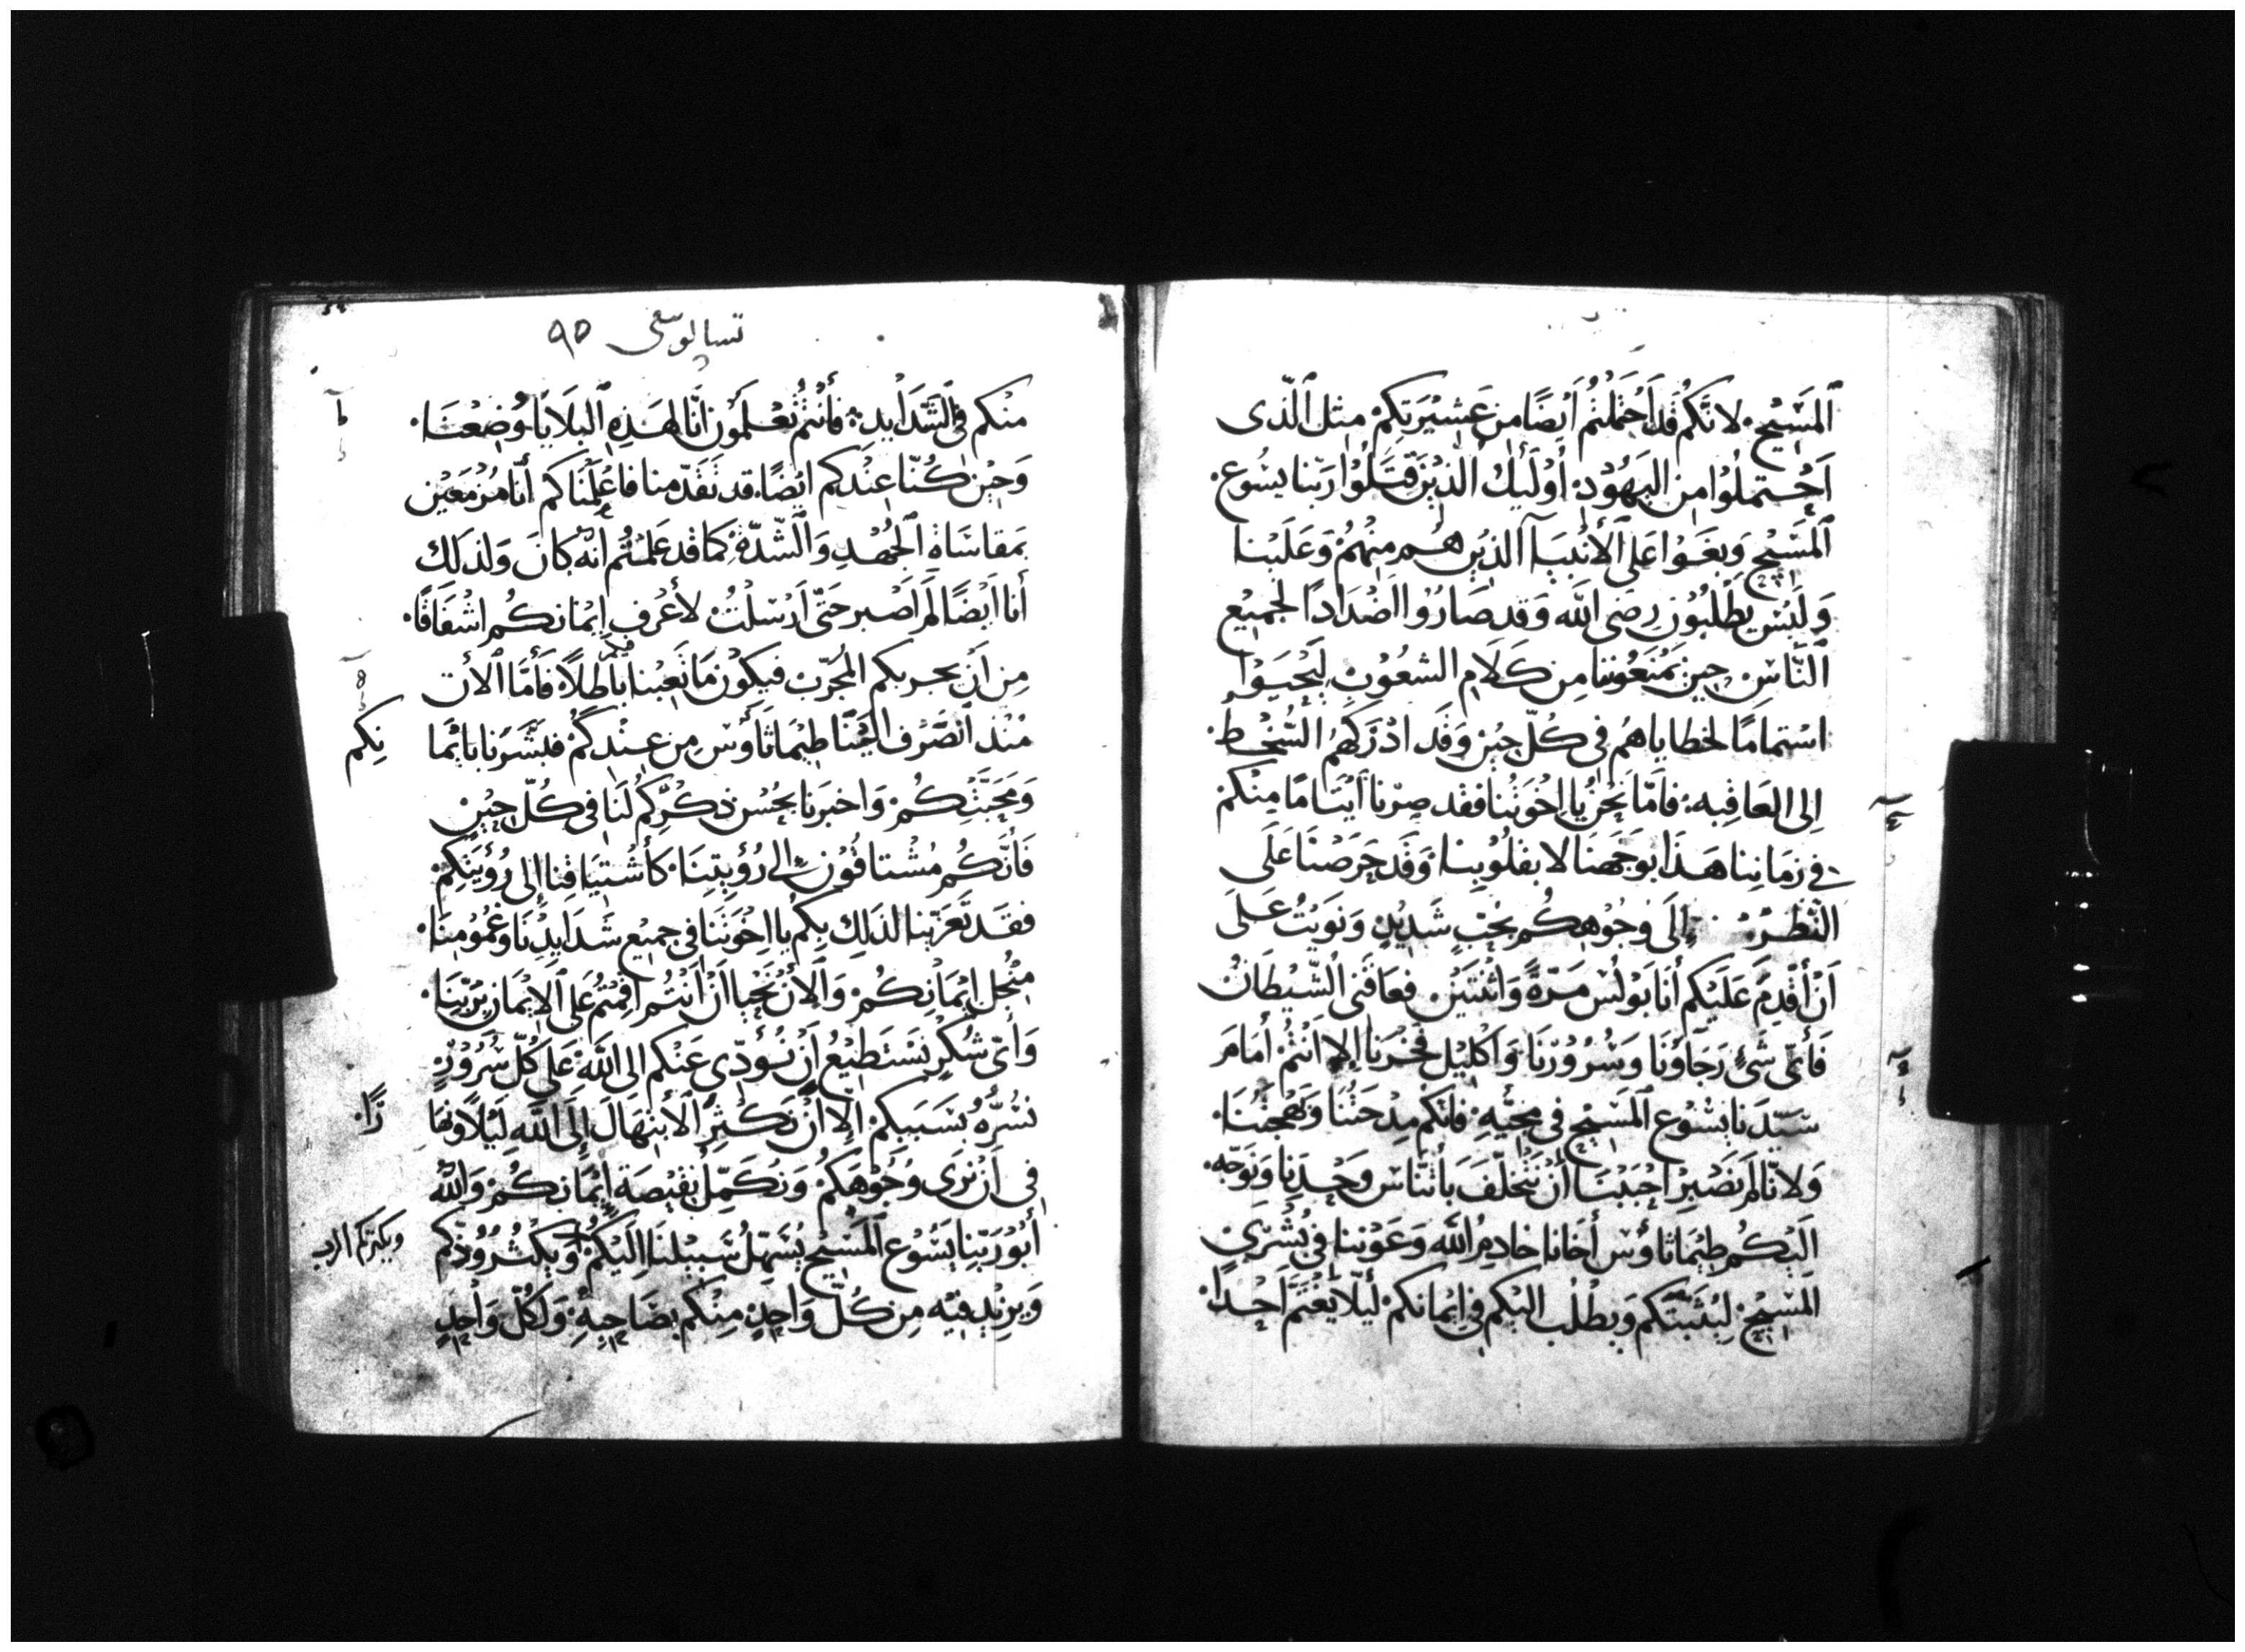 المَسِيْحِ. لانَّكُم قَد اَحْتَمَلْتُم اَيْضًا مِن عَشِيْرَتِكُمْ مِثل الّذى
اَحْتَملُوا مِن اليَهُوْدِ. أوْلَيِكَ الذِيْنَ قَتَلُوْا رَبّنا يسُوع.
المَسَيْحِ وَبغَوْا عَلى الأَنْبيَآ الذيْن هُم مِنْهُمْ وَعَلَيْنا
وَلَيْسَ يَطْلُبُوْن رِضَى الله وَقد صَارُوْا اضْدَادًا لجَمِيْع
النَّاسِ حِيْن يَمْنَعُوْننا مِن كَلَامِ الشعُوْبِ لِيَحْيَوْا
اسْتماما لخطاياهُم فى كُلّ حِيْن وَقَد ادْرَكهُم السُّخْط.
إلى العَاقبه. فامّا نَحْنُ يا اِخْوَتُنا فقَد صِرْنا اَيْتَامًا مِنْكُمْ
فى زمَانِنا هَذَا بوَجَهنَا لا بقلُوْبِنا. وَقَد حَرَصْنا عَلَى
النّظرِ إلَى وُجُوْهِكُم بحُبٍّ شَدِيْدٍ وَنوَيْتُ عَلَى
اَنْ أقْدِمَ عَلَيْكُم أنا بَوْلُسْ مَرّةً وَاثْنَتَيْن. فعَاقَنى الشّيْطَانُ
فَأىّ شَئٍ رَجَاوُنَا وَسُرُوْرُنَا وَاكْلِيْل فَخْرِنا إلا اَنْتُمْ أمَامَ
سَيّدَنا يسُوْع المَسَيْح فى مَجِيّهِ. فانّكُم مِدْحَتُنَا وَبَهْجتُنَا.
وَلانّا لَم نَصْبِرْ احْبَبْنَا أنْ نَتْخلّفَ باَثنَاسْ وَحْدِنا وَنوَجّه.
اليْكُم طِيْمَاثاوُسْ أخَانا خادِمُ الله وَعَوْننا فى بُشْرَى
المَسَيْحِ لِيُثبّتَكُم وَيطْلُب اليْكُم فى اِيْمانكُم ليَلّا يَغْتَمّ اَحْدًا.
تسالونيقى ٩٥
منْكم فى الشّدَايدِ. فأنْتمُ تعْلَمُون انَّا لهَذِهِ البَلَايَا وُضِعْنَا.
وَحِيْن كُنّا عِنْدِكُم ايْضًا. قد تَقَدّمنا فاعْلَمْنَاكم أنّا مُزْمَعِيْن
بمَقاسَاةِ الجُهْدِ وَالشّدّةِ. كما قد عَلمْتُم أنّهُ كانَ وَلذلَك
أنا اَيْضًا لَم اَصْبر حَتّى اَرْسَلْتُ لأعْرفَ إيْمانكُم اشْفَاقًا.
مِن اَنْ يجرّبكم المُجَرّب فيكُوْن مَا تَعِبْنا فيكم باطِلاً. فَأمَّا الأن
مُنْذ انصَرْف اليْنَا طيْمَاثاوُس من عِنْدِكُم فبَشّرَنا باِيْما
نِكم
وَمَحَبّتِكُمْ. وَاخبَرَنا بحُسْن ذِكْرِكُم لَنا فى كُلّ حِيْن
فَأنّكُم مُشْتاقُوْن إلى رُؤيتِنَا. كأشْتِيَاقِنا إلى رُؤيَتِكُم
فقَد تَعَزّيْنا لذَلِك بكُم يا اِخْوَتَنا فى جمِيْع شَدَايدِنَا وَغمُوْمِنَا.
مِنْ اجل إيْمَانِكُم. وَالأن نَحْيا اَنْ اَنْتُم اقمْتمُ عَلى الإيْمَان بِرَبّنَا.
وَأىّ شُكْرٍ نسْتَطِيْعُ اَنْ نُؤَدِّى عَنْكم الى اللهِ عَلى كُلّ سُرُوْرٍ
نُسَرُّهُ بسَبَبِكُم إلا اَنْ نكْثِرَ الأبْتهَالَ إلَى الله لَيْلاً وَنهَا
رًا.
فى اَنْ نرَى وُجُوْهَكُمْ وَنُكَمّلَ نقيْصَة إيْمَانِكُمْ وَالله
أبُو رَبّنا يَسُوْع المَسَيْح يُسَهّلُ سَبيْلنا اليْكُم وَيكْثرُ وُدّكم
ويكثركم الرب
وَيزيْد فيْه مِن كُلّ وَاحِدٍ مِنْكُم بصَاحِبهِ. وَلكُلّ وَاحِدٍ